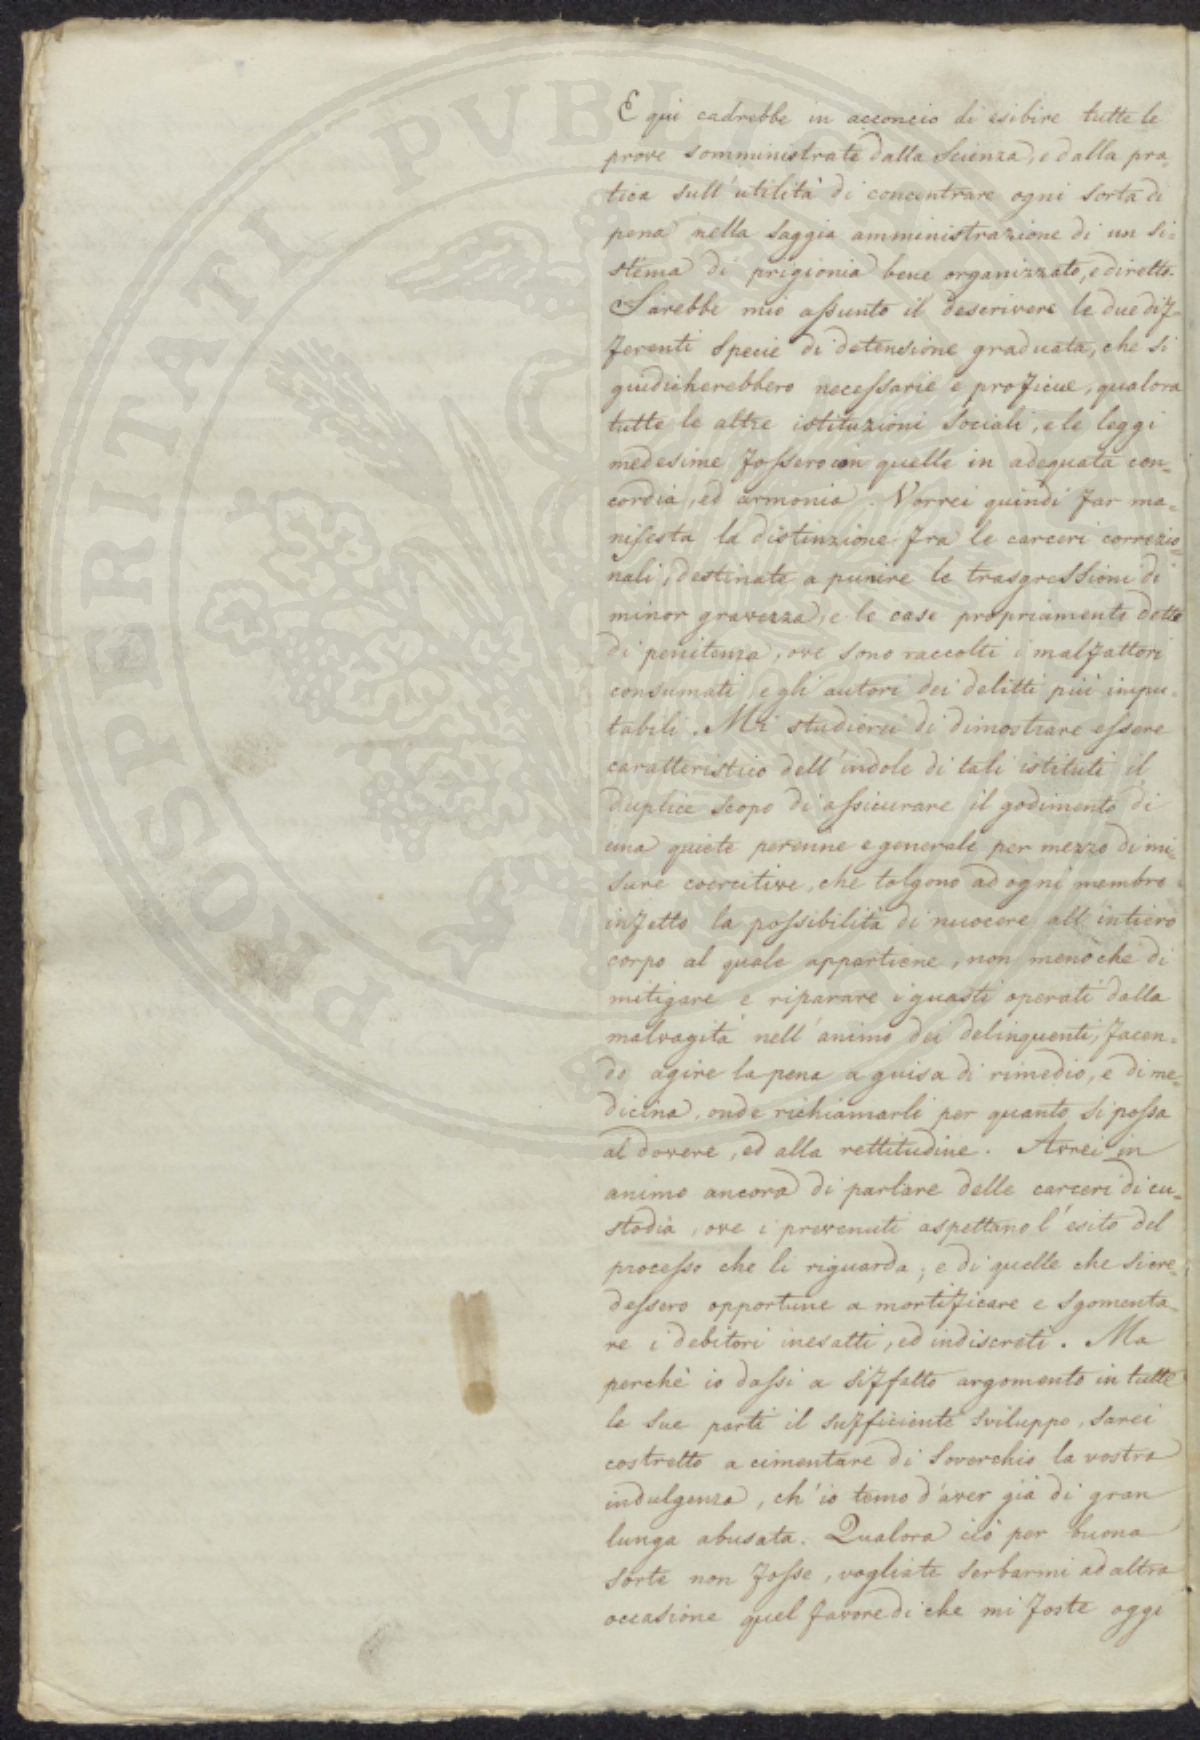 E qui cadrebbe in acconcio di esibire tutte le
prove somministrate dalla Scienza, e dalla pra-
tica sull'utilità di concentrare ogni sorta di
pena nella saggia amministrazione di un si-
stema di prigionia bene organizzato, e diretto.
Sarebbe mio assunto il descrivere le due dif-
ferenti specie di detensione graduata, che si
giudicherebbero necessarie e proficue, qualora
tutte le altre istituzioni sociali, e le leggi
medesime fossero con quelle in adeguata con-
cordia, ed armonia. Vorrei quindi far ma-
nifesta la distinzione fra le carceri correzio-
nali, destinate a punire le trasgressioni di
minor gravezza, e le case propriamente dette
di penitenza, ove sono raccolti i malfattori
consumati, e gli autori dei delitti più impu-
tabili. Mi studierei di dimostrare essere
caratteristico dell'indole di tali istituti il
duplice scopo di assicurare il godimento di
una quiete perenne e generale per mezzo di mi-
sure coercitive, che tolgono ad ogni membro
infetto la possibilità di nuocere all'intiero
corpo al quale appartiene, non meno che di
mitigare e riparare i guasti operati dalla
malvagità nell'animo dei delinquenti, facen-
do agire la pena a guisa di rimedio, e di me-
dicina, onde richiamarli per quanto si possa
al dovere, ed alla rettitudine. Avrei in
animo ancora di parlare delle carceri di cu-
stodia, ove i prevenuti aspettano l'esito del
processo che li riguarda; e di quelle che si cre-
dessero opportune a mortificare e sgomenta-
re i debitori inesatti, ed indiscreti. Ma
perchè io dassi a siffatto argomento in tutte
le sue parti il sufficiente sviluppo, sarei
costretto a cimentare di soverchio la vostra
indulgenza, ch'io temo d'aver già di gran
lunga abusata. Qualora ciò per buona
sorte non fosse, vogliate serbarmi ad altra
occasione quel favore di che mi foste oggi
PROSPERITATI PUBLICAE